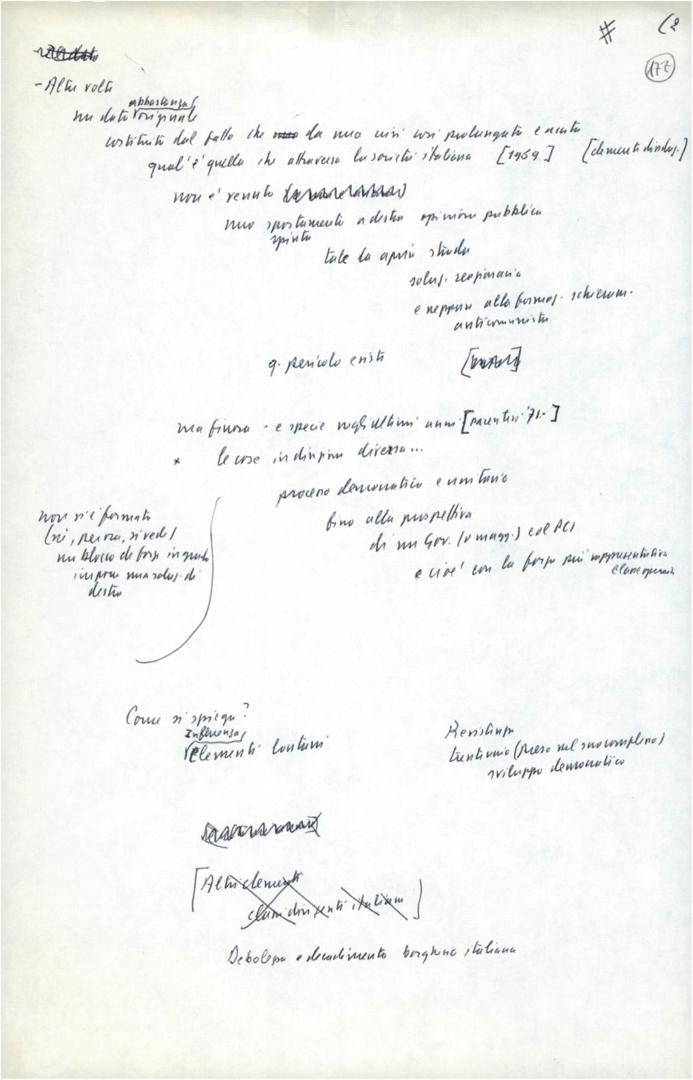 # (2
177
- Altre volte
abbastanza
un dato originale
costituito dal fatto che da una crisi così prolungata e acuta
qual'è quella che attraversa la società italiana [1969.] [elementi disolus.]
non è venuto
uno spostamento a destra opinione pubblica
spinta
tale da aprire strada
soluz. reazionaria
e neppure alla formaz. schieram.
anticomunista
q. pericolo esiste
ma finora - e specie negli ultimi anni [parentesi '71-]
x le cose in direzione diversa...
processo democratico e unitario
fino alla prospettiva
di un Gov. (o magg.) col PCI
e cioè con la forza più rappresentativa
classe operaia
non si è formato
(sì, per ora, si vede)
un blocco di forze in grado
imporre una soluz. di
destra
Come si spiega?
Influenza
Elementi lontani
Resistenza
trentennio (preso nel suo complesso)
sviluppo democratico
[Altri elementi
classi dirigenti italiane]
Debolezza e decadimento borghesia italiana